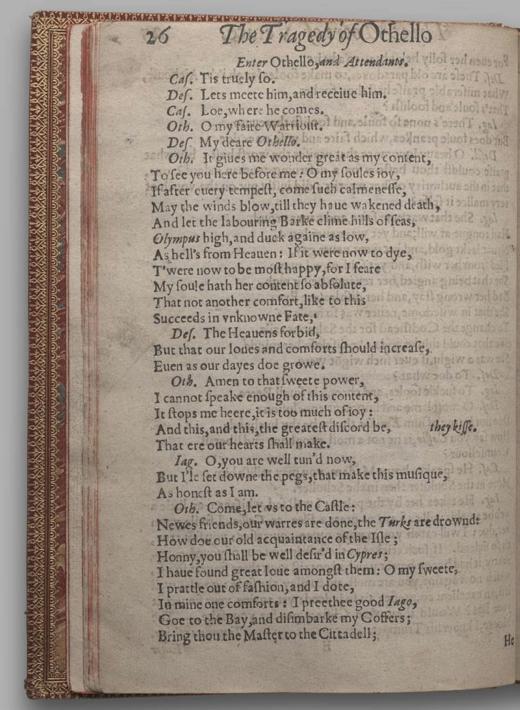 26 The Tragedy of Othello
Enter Othello, and Attendants.
Cas. Tis truely so.
Des. Lets meete him, and receiue him.
Cas. Loe, where he comes.
Oth. O my faire Warriour.
Des. My deare Othello.
Oth. It giues me wonder great as my content,
To see you here before me: O my soules ioy,
If after euery tempest, come such calmenesse,
May the winds blow, till they haue wakened death,
And let the labouring Barke clime hills of seas,
Olympus high, and duck againe as low,
As hell's from Heauen: If it were now to dye,
T'were now to be most happy, for I feare
My soule hath her content so absolute,
That not another comfort, like to this
Succeeds in vnknowne Fate,
Des. The Heauens forbid,
But that our loues and comforts should increase,
Euen as our dayes doe growe.
Oth. Amen to that sweete power,
I cannot speake enough of this content,
It stops me heere, it is too much of ioy:
And this, and this, the greatest discord be, they kisse.
That ere our hearts shall make.
Iag. O, you are well tun'd now,
But I'le set downe the pegs, that make this musique,
As honest as I am.
Oth. Come, let vs to the Castle:
Newes friends, our warres are done, the Turks are drownd:
How doe our old acquaintance of the Isle;
Honny, you shall be well desir'd in Cypres;
I haue found great loue amongst them: O my sweete,
I prattle out of fashion, and I dote,
In mine one comforts: I preethee good Iago,
Goe to the Bay, and disimbarke my Coffers;
Bring thou the Master to the Cittadell;
He